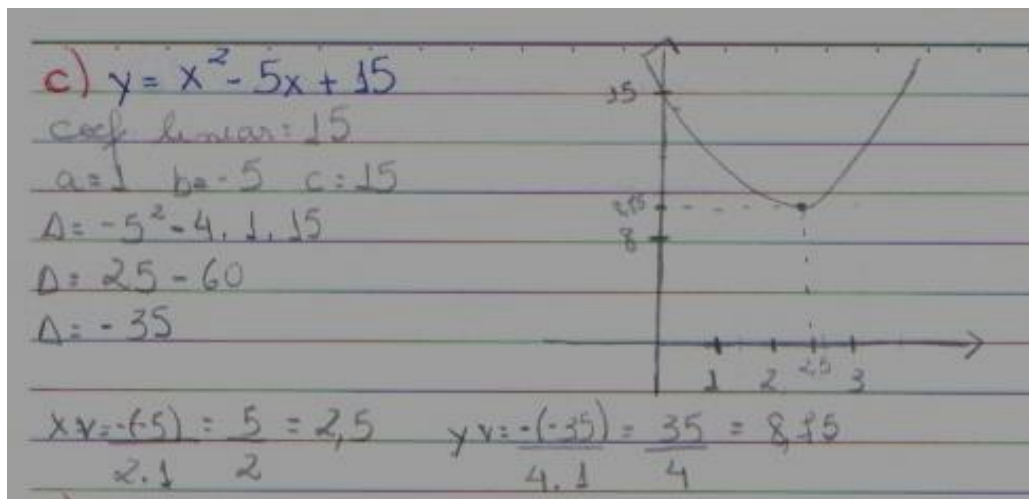 c) y = x² - 5x + 15
coef linear: 15
a = 1 b = - 5 c = 15
Δ = -5² - 4 . 1 . 15
Δ = 25 - 60
Δ = - 35
xv = -(-5) / 2.1 = 5 / 2 = 2,5 yv = -(-35) / 4.1 = 35 / 4 = 8,75
15
8,75
8
1 2 2,5 3